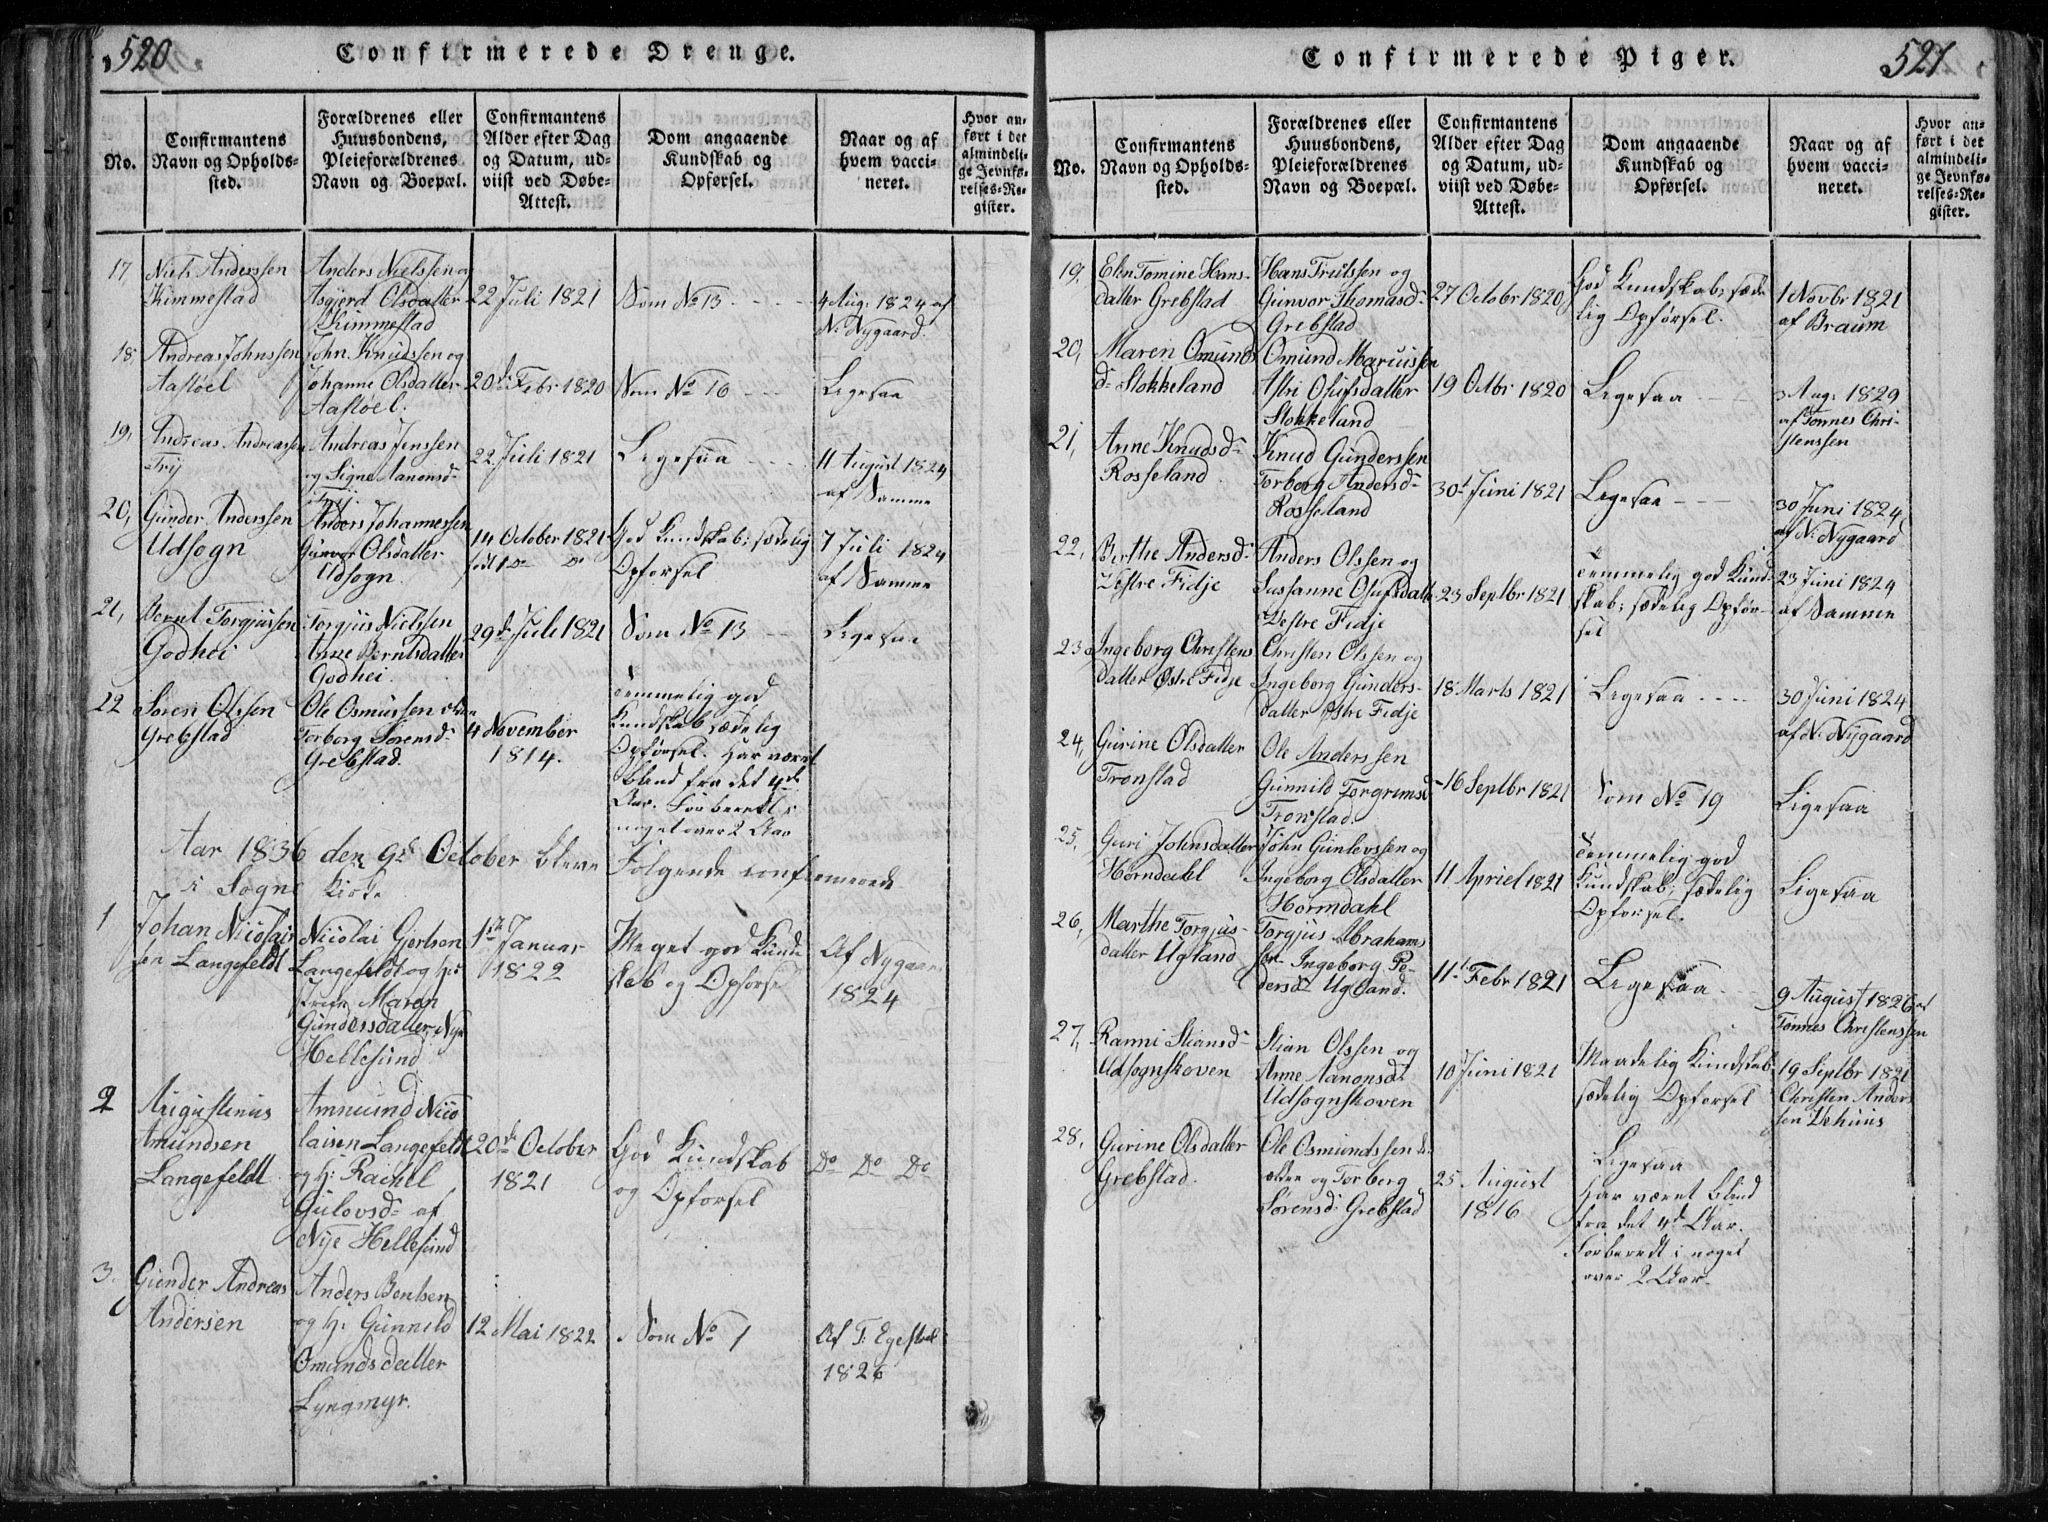 520
Confirmerede Drenge.
No.
Confirmantens
Navn og Opholds-
sted.
Forældrenes eller
Huusbondens,
Pleieforældrenes
Navn og Boepæl.
Confirmantens
Alder efter Dag
og Datum, ud-
viist ved Døbe-
Attest.
Dom angaaende
Kundskab og
Opførsel.
Naar og af
hvem vacci-
neret.
Hvor an-
ført i det
almindeli-
ge Jevnfø-
relses-Re-
gister.
17,
Niels Anderssen
Kimmestad
Anders Nielssen og
Asgjerd Olsdatter
Kimmestad
22 Juli 1821
Som No 13
4 Aug. 1824 af
N. Nygaard
18,
Andreas Johnssen
Aastøel
John Knudssen og
Johanne Olsdatter
Aastøel.
20de Febr 1820
Som No 16
Ligesaa
19,
Andreas Andreassen
Trij
Andreas Jenssen
og Signe Aanonsd-
Trij.
22 Juli 1821
Ligesaa
11 August 1824
af Samme
20,
Gunder Anderssen
Udsogn
Anders Johannessen
Gunvor Olsdatter
Udsogn.
14 October 1821
født 1 Do Do
God Kundskab; sædelig
Opførsel
7 Juli 1824
af Samme
21,
Bernt Torgjussen
Godhei
Torgjus Nielssen
Anne Berntsdatter
Godhei.
29de Juli 1821
Som No 13
Ligesaa
22
Søren Olssen
Grebstad
Ole Osmussen
Torborg Sørensd-
Grebstad.
4 November
1814.
Temmelig god
Kundskab sædelig
Opførsel. Har været
blind fra det 4de
Aar. Forberedt i
noget over 2 Aar
Aar 1836 den 9de October bleve Følgende confirmerede
i Sogne Kirke
1
Johan Nicolai
sen Langefeldt
Nicolai Gjertsen
Langefeldt og Hu-
strue Maren
Gundersdatter Nye
Hellesund
1ste Januar
1822
Meget god Kund
skab og Opførsel
Af Nygaard
1824
2
Augustinus
Amundsen
Langefeldt
Ammund Nico
laisen Langefeldt
og H: Rachel
Gulovsd- af
Nye Hellesund
20de October
1821
God Kundskab
og Opførsel
Do Do Do
3.
Gunder Andreas
Andersen
Anders Bentsen
og H: Gunnild
Omundsdatter
Lyngmyr.
12 Mai 1822
Som No 1
Af T. Egestøl
1826
Confirmerede Piger.
521
No.
Confirmantens
Navn og Opholds-
sted.
Forældrenes eller
Huusbondens,
Pleieforældrenes
Navn og Boepæl.
Confirmantens
Alder efter Dag
og Datum, ud-
viist ved Døbe-
Attest.
Dom angaaende
Kundskab og
Opførsel.
Naar og af
hvem vacci-
neret.
Hvor an-
ført i det
almindeli-
ge Jevnfø-
relses-Re-
gister.
19,
Elen Tomine Hans-
datter Grebstad
Hans Trulssen og
Gunvor Thomasd-
Grebstad
27 Octobr 1820
God Kundskab; sæde
lig Opførsel.
1 Novbr 1821
af Braum
20,
Maren Omunds
d- Stokkeland
Omund Marcussen
Astri Olufsdatter
Stokkeland
19 Octbr 1820
Ligesaa
3 Aug. 1829
af Tonnes Chri-
stenssen
21,
Anne Knudsd-
Rosseland
Knud Gunderssen
Torborg Andersd-
Rosseland
30t Juni 1821
Ligesaa
30 Juni 1824
af N. Nygaard
22,
Berthe Andersd-
Vestre Fidje
Anders Olssen og
Sussanne Olufsdatt-
Vestre Fidje
23 Septbr 1821
Temmelig god Kund-
skab; sædelig Opfør-
sel
23 Juni 1824
af Samme
23
Ingeborg Christens
datter Østre Fidje
Christen Olssen og
Ingeborg Gunders-
datter Østre Fidje
18 Marts 1821
Ligesaa
30 Juni 1824
af N. Nygaard
24,
Gurine Olsdatter
Tronstad
Ole Anderssen
Gunnild Torgrimsd
Tronstad.
16 Septbr 1821
Som No 19
Ligesaa
25,
Guri Johnsdatter
Horndahl
John Gunlevssen og
Ingeborg Olsdatter
Horndahl
11 Apriel 1821
Temmelig god
Kundskab; sædelig
Opførsel.
Ligesaa
26,
Marthe Torgjus-
datter Ugland
Torgjus Abrahams
sen Ingeborg Pe-
dersd- Ugland.
11t Febr 1821
Ligesaa
9 August 1826 af
Tønnes Christenssen
27,
Ranni Stiansd-
Udsognskoven
Stian Olssen og
Anne Aanonsd-
Udsognskoven
10 Juni 1821
Maadelig Kundskab
sædelig Opførsel
19 Septbr 1821
Christen Anders
sen Vehuus
28,
Gurine Olsdatter
Grebstad.
Ole Osmundssen d.
ældre og Torborg
Sørensd- Grebstad
25 August
1816
Ligesaa
Har været blind
fra det 4de Aar.
Forberedt i noget
over 2 Aar